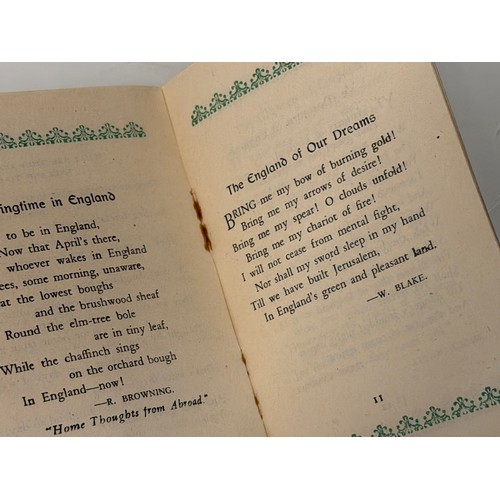 ingtime in England
to be in England,
Now that April's there,
whoever wakes in England
ees, some morning, unaware,
at the lowest boughs
and the brushwood sheaf
Round the elm-tree bole
are in tiny leaf,
While the chaffinch sings
on the orchard bough
In England—now!
—R. BROWNING.
"Home Thoughts from Abroad."
The England of Our Dreams
BRING me my bow of burning gold!
Bring me my arrows of desire!
Bring me my spear! O clouds unfold!
Bring me my chariot of fire!
I will not cease from mental fight,
Nor shall my sword sleep in my hand
Till we have built Jerusalem,
In England's green and pleasant land.
—W. BLAKE.
11